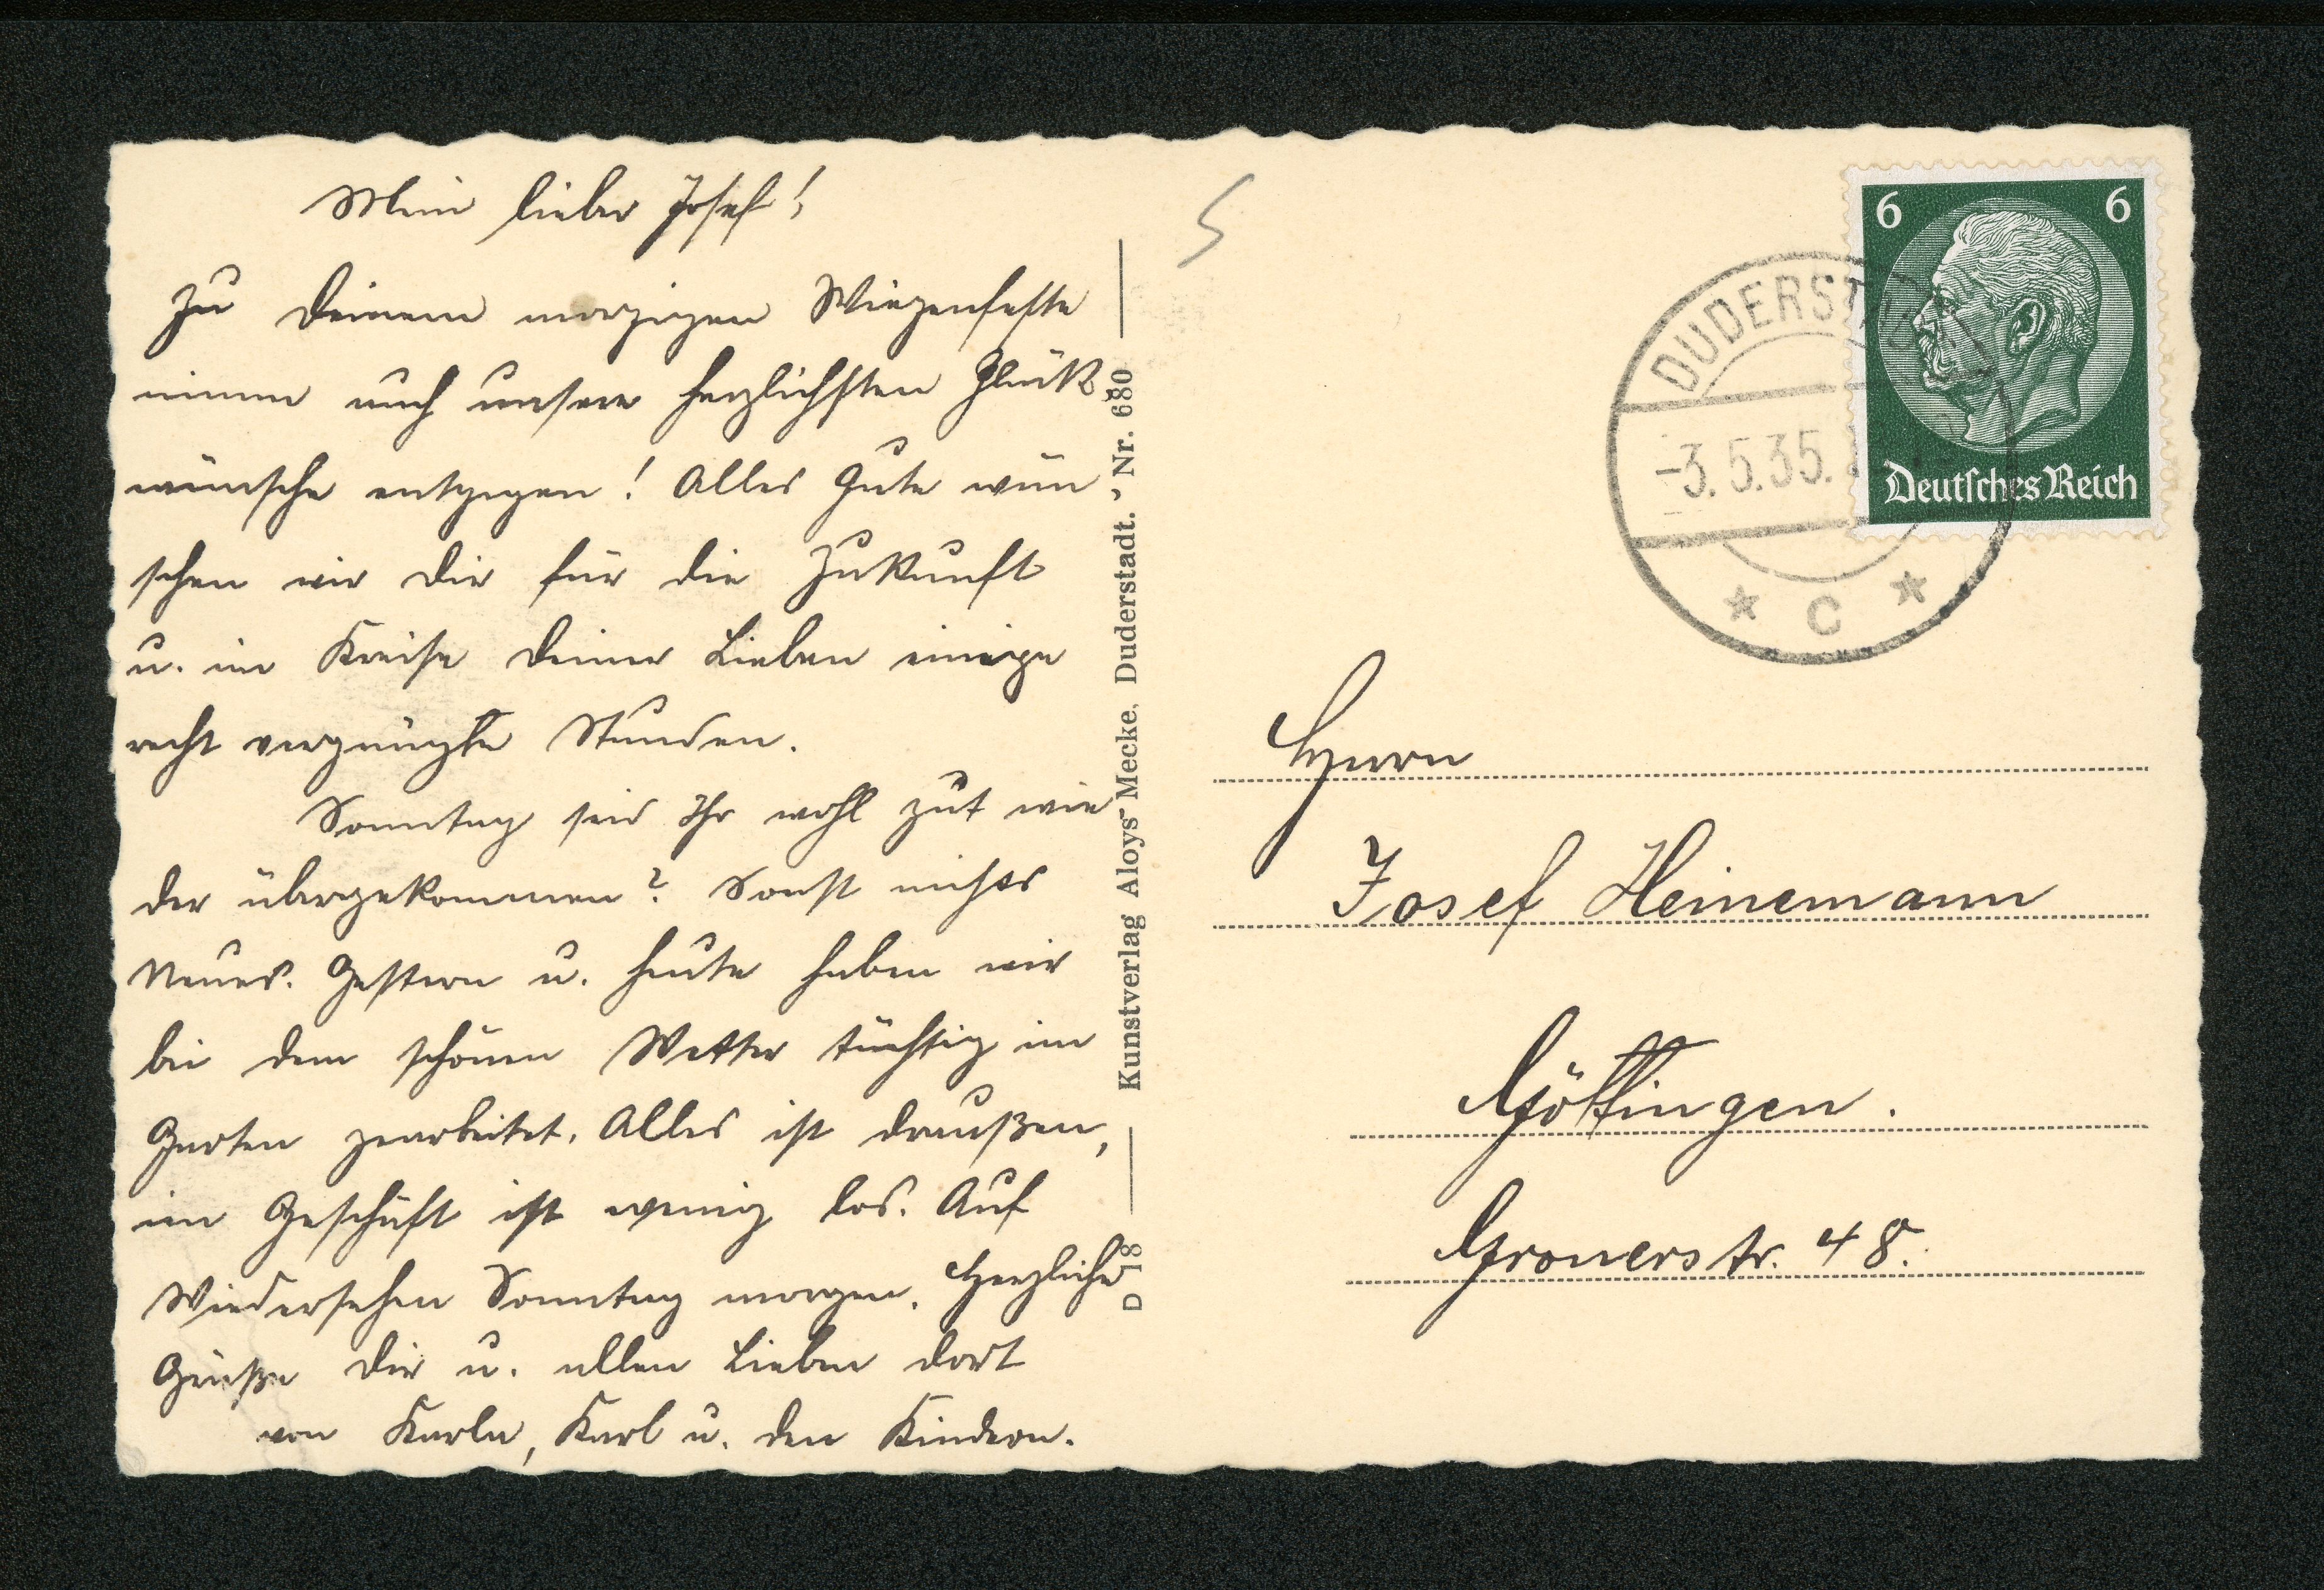 Mein lieber Josef!
Zu Deinem morgigen Wiegenfeste
nimm auch unsere herzlichsten Glück
wünsche entgegen! Alles Gute wün
schen wir Dir für die Zukunft
u. im Kreise Deiner Lieben einige
recht vergnügte Stunden.
Sonntag seid Ihr wohl gut wie
der übergekommen? Sonst nichts
Neues. Gestern u. heute haben wir
bei dem schönen Wetter tüchtig im
Garten gearbeitet. Alles ist draußen,
im Geschäft ist wenig los. Auf
Wiedersehen Sonntag morgen. Herzliche
Grüße Dir u. allen Lieben dort
von Karla, Karl u. den Kindern.
D 18 Kunstverlag Aloys Mecke, Duderstadt. Nr. 680
6 6
Deutsches Reich
DUDERSTADT
-3.5.35.
* C *
Herrn
Josef Heinemann
Göttingen.
Gronerstr. 48.